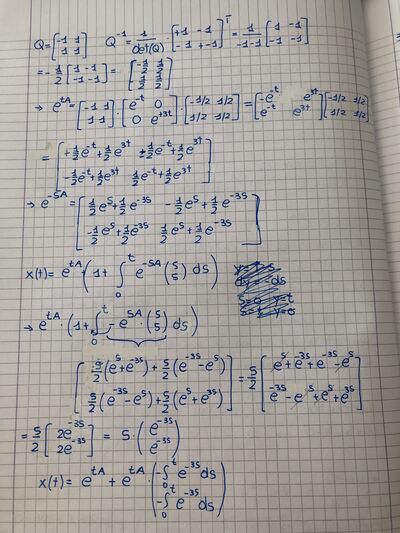 Q = [-1 1; 1 1]   Q^-1 = 1/det(Q) · [+1 -1; -1 +-1]^T = 1/(-1-1) [1 -1; -1 -1]
= -1/2 [1 -1; -1 -1] = [-1/2 1/2; 1/2 1/2]
→ e^tA = [-1 1; 1 1] · [e^-t 0; 0 e^+3t] · [-1/2 1/2; 1/2 1/2] = [-e^-t e^3t; e^-t e^3t] [-1/2 1/2; 1/2 1/2]
= [+1/2 e^-t + 1/2 e^3t   ±1/2 e^-t + 1/2 e^3t; -1/2 e^-t + 1/2 e^3t   1/2 e^-t + 1/2 e^3t]
→ e^-SA = [1/2 e^s + 1/2 e^-3s   -1/2 e^s + 1/2 e^-3s; -1/2 e^s + 1/2 e^-3s   1/2 e^s + 1/2 e^-3s]
x(t) = e^tA · (1 + ∫_0^t e^-SA (5; 5) ds)
→ e^tA · (1 + ∫_0^t - e^SA · (5; 5) ds)
s=0 y=t
s=t y=0
[5/2 (e^s + e^-3s) + 5/2 (e^-3s - e^s); 5/2 (e^-3s - e^s) + 5/2 (e^s + e^3s)] = 5/2 [e^s + e^-3s + e^-3s - e^s; e^-3s - e^s + e^s + e^3s]
= 5/2 [2e^-3s; 2e^-3s] = 5 · (e^-3s; e^-3s)
x(t) = e^tA + e^tA · (-∫_0^t e^-3s ds; -∫_0^t e^-3s ds)